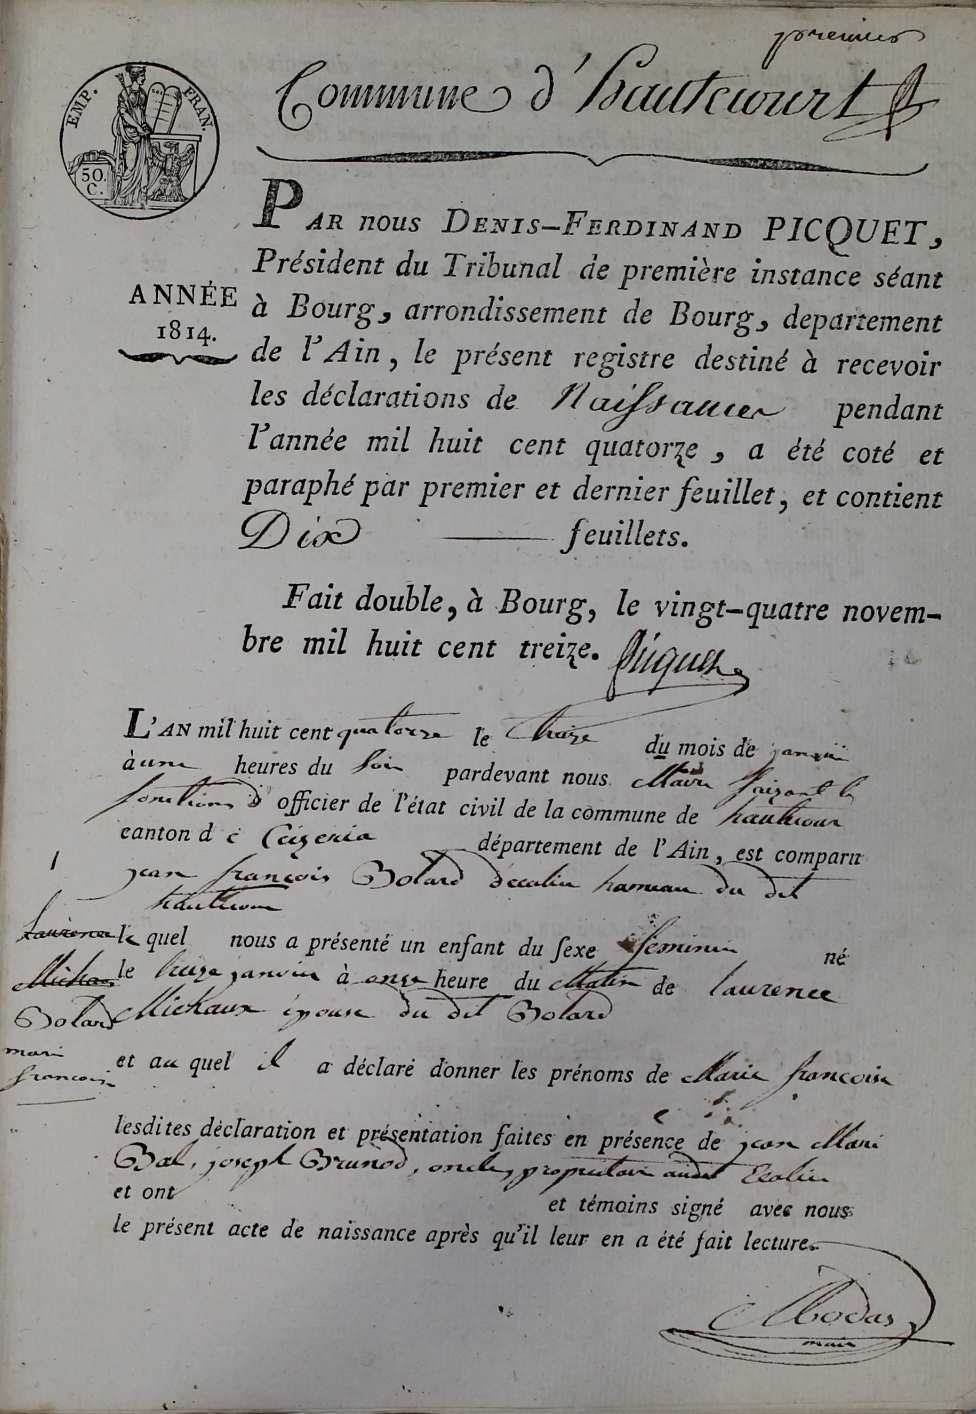 premier
Commune d'hautecourt
EMP. FRAN.
50.
C.
PAR nous DENIS-FERDINAND PICQUET,
Président du Tribunal de première instance séant
à Bourg, arrondissement de Bourg, departement
de l'Ain, le présent registre destiné à recevoir
les déclarations de Naissances pendant
l'année mil huit cent quatorze, a été coté et
paraphé par premier et dernier feuillet, et contient
Dix feuillets.
ANNÉE
1814.
Fait double, à Bourg, le vingt-quatre novem-
bre mil huit cent treize. Picquet
L'AN mil huit cent quatorze le treize du mois de janvier
à une heures du soir pardevant nous Maire faisant les
fonctions d'officier de l'état civil de la commune de hautecour
canton d e Ceizeria département de l'Ain, est comparu
1
jean françois Bolard hameau du dit
hautecour
le quel nous a présenté un enfant du sexe feminin né
le treize janvier à onze heure du Matin de laurence
Michaux épouse du dit Bolard
et au quel il a déclaré donner les prénoms de Marie françoise
Laurence
Michau
Bolard
marie
francoise
lesdites déclaration et présentation faites en présence de jean Marie
joseph Brunod, oncle, proprietaire audit
et ont et témoins signé avec nous
le présent acte de naissance après qu'il leur en a été fait lecture.
maire